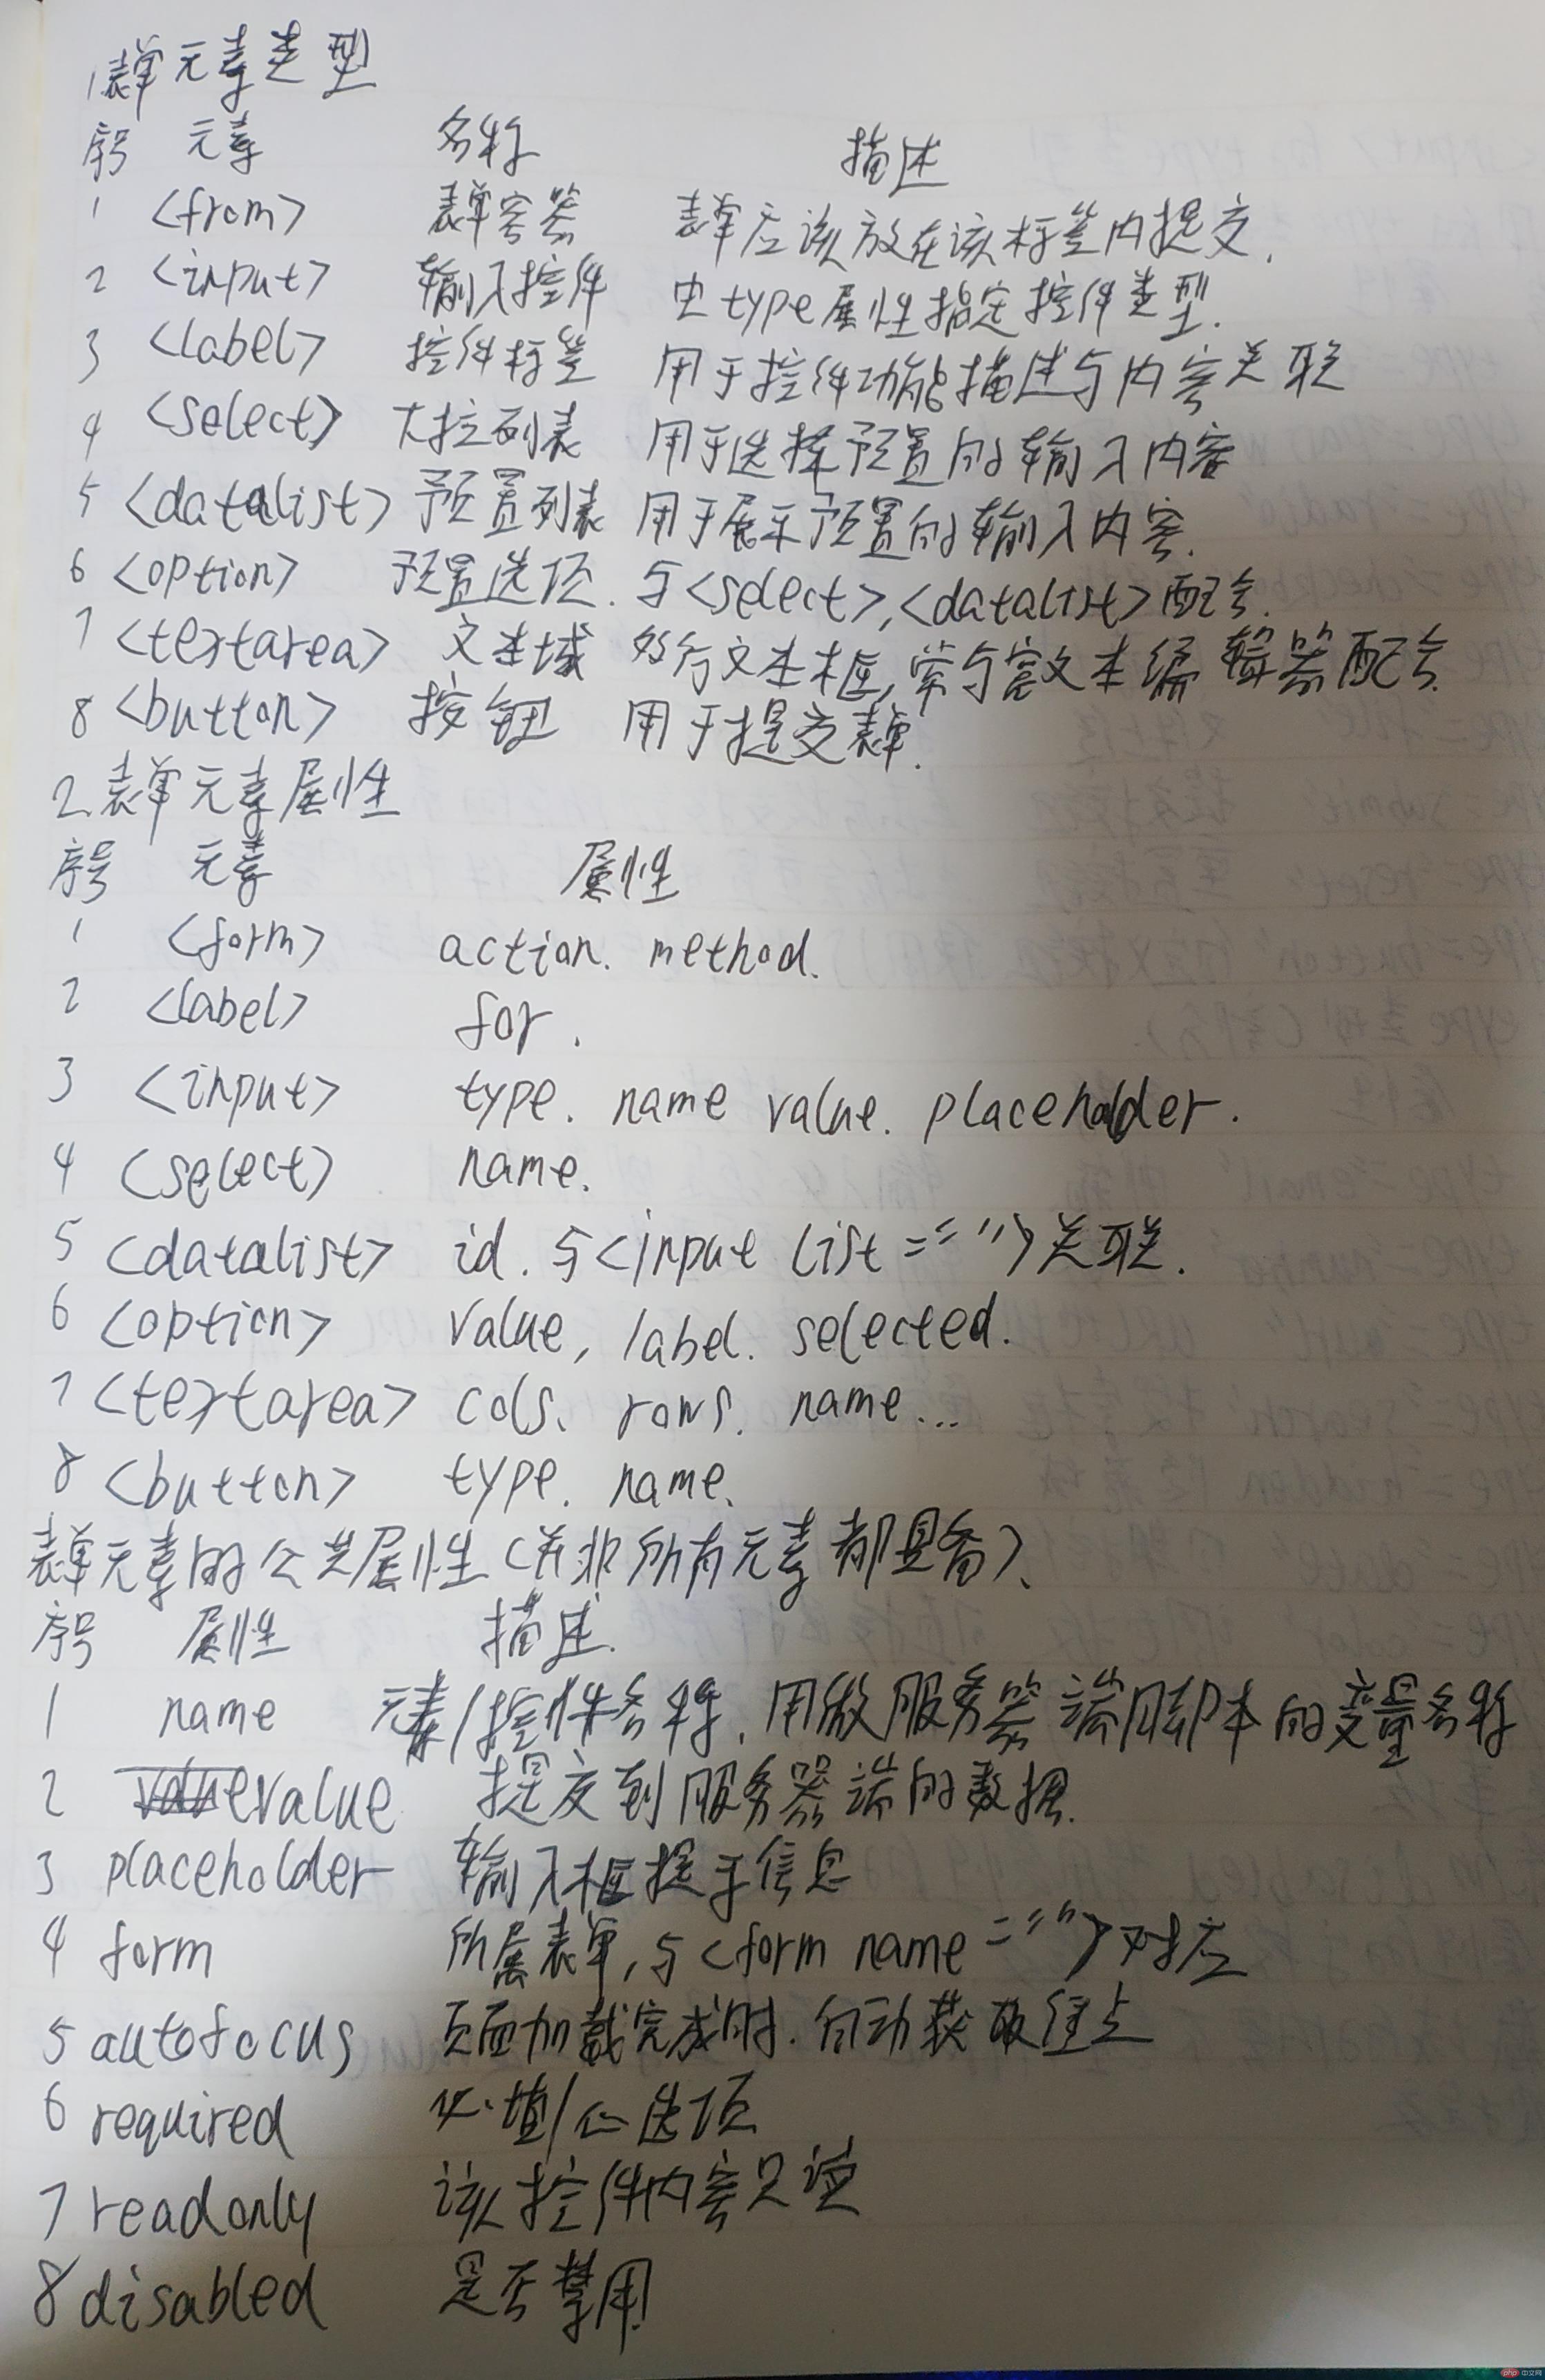 1表单元素类型
序号 元素 名称 描述
1 <from> 表单容器 表单应该放在该标签内提交.
2 <input> 输入控件 由type属性指定控件类型.
3 <label> 控件标签 用于控件功能描述与内容关联
4 <select> 下拉列表 用于选择预置的输入内容
5 <datalist> 预置列表 用于展示预置的输入内容.
6 <option> 预置选项. 与<select>,<datalist>配合.
7 <textarea> 文本域 多行文本框,常与富文本编辑器配合.
8 <button> 按钮 用于提交表单.
2.表单元素属性
序号 元素 属性
1 <form> action. method.
2 <label> for.
3 <input> type. name value. placeholder.
4 <select> name.
5 <datalist> id. 与<input list=“”>关联.
6 <option> value, label. selected.
7 <textarea> cols、rows. name...
8 <button> type. name、
表单元素的公共属性(并非所有元素都具备)、
序号 属性 描述.
1 name 元素/控件名称,用做服务器端脚本的变量名称
2 value 提交到服务器端的数据.
3 placeholder 输入框提示信息
4 form 所属表单,与<form name=“”>对应
5 autofocus 页面加载完成时.自动获取焦点
6 required 必填/必选项
7 readonly 该控件内容只读
8 disabled 是否禁用
php 中文网